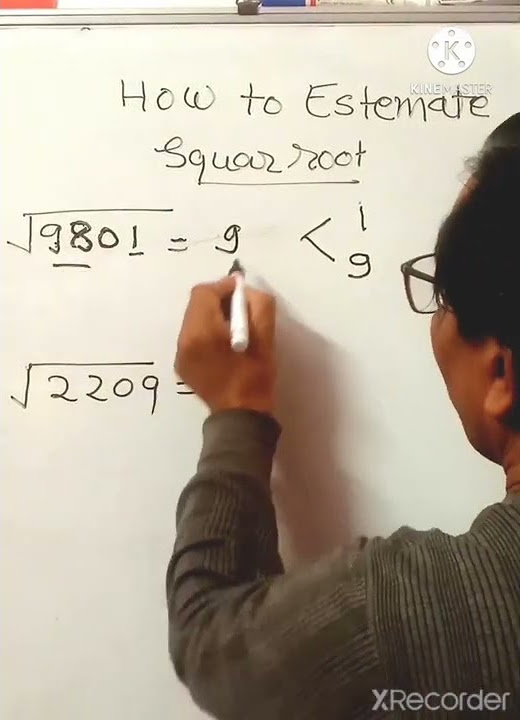 K
KINEMASTER
How to Estemate
Squar root
√9801 = 9 < 1 9
√2209 =
XRecorder